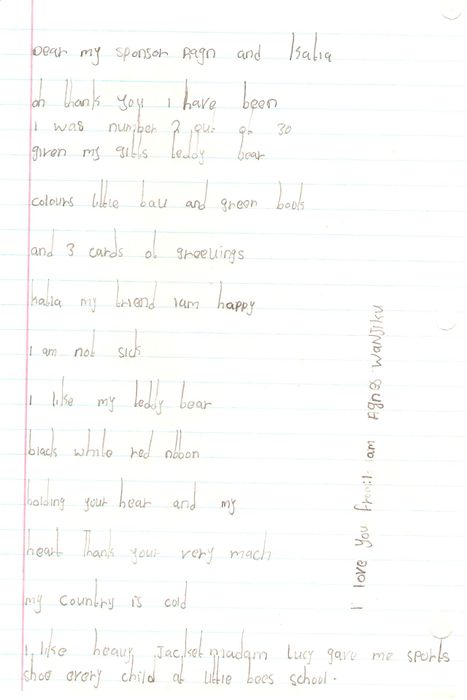 Dear my sponsor Aagn and Katia
oh thank you i have been
i was number 2 out of 30
given my gifts teddy bear
colours little ball and green books
and 3 cards of greetings
Katia my friend iam happy
i am not sick
i like my teddy bear
black white red ribbon
holding your hear and my
heart Thank your very mach
my country is cold
i like heavy Jacket madam Lucy gave me sports
shoe every child at little bees school.
I love you from:- iam Agnes WANJIKU